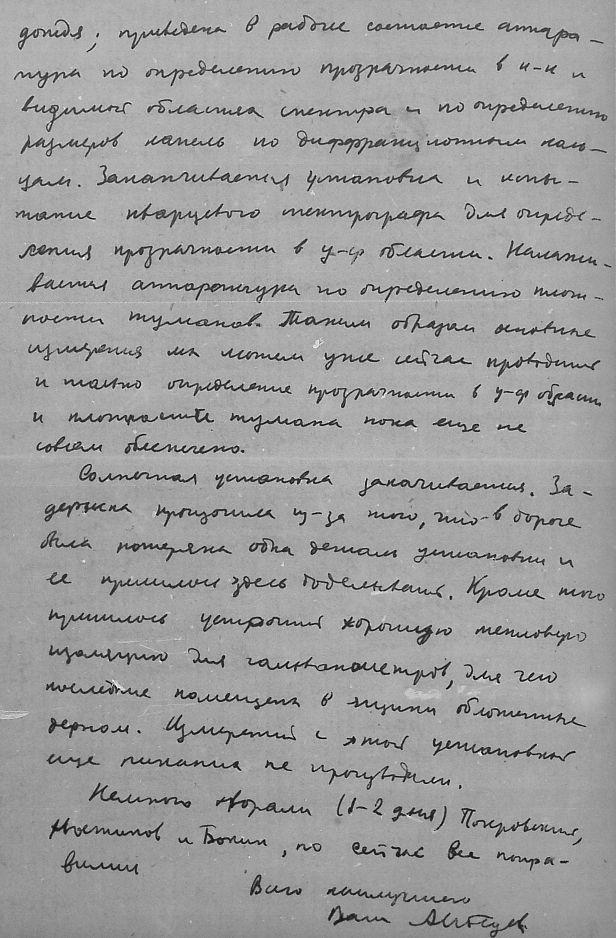 дождя; приведена в рабочее состояние аппара-
тура по определению прозрачности в и-к и
видимой областях спектра и по определению
размеров капель по диффракционным коль-
цам. Заканчивается установка и испы-
тание кварцевого спектрографа для опреде-
ления прозрачности в у-ф области. Налажи-
вается аппаратура по определению плот-
ности туманов. Таким образом основные
измерения мы можем уже сейчас проводить
и только определение прозрачности в у-ф области
и плотности тумана пока еще не
совсем обеспечено.
Солнечная установка заканчивается. За-
держка произошла из-за того, что в дороге
была потеряна одна деталь установки и
ее пришлось здесь доделывать. Кроме того
пришлось устроить хорошую тепловую
изоляцию для гальванометров, для чего
последние помещены в ящики обложенные
дерном. Измерений с этой установкой
еще пока не производили.
Немного хворали (1-2 дня) Покровский,
и, но сейчас все попра-
вились
Всего наилучшего
Ваш